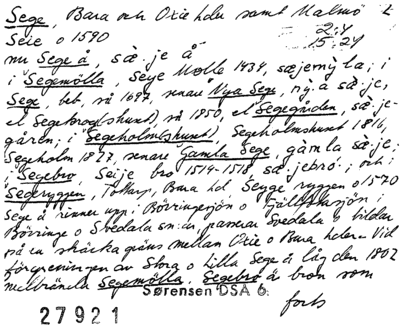 Sege, Bara och Oxie hdr samt Malmö L
Seie o 1590 2:4
15:24
nu Sege å, sæ·je å
i Segemölla, Seye Mølle 1434, sæjemÿla; i
Sege, beb, så 1697, senare Nya Sege, nÿ·a sæ·je,
el Segebro(shund) så 1850, el Segegården, sæ·je-
gåren; i Segeholm(shund), Segeholmshund 1816,
Segeholm 1827, senare Gamla Sege, gamla sæ·je;
i Segebro, Seije bro 1514-1518, sæjebró; och i
Segeryggen, Tottarp, Bara hd, Seyge ryggen o 1570
Sege å rinner upp i Börringesjön o Fjällfotasjön i
Börringe o Svedala sn:ar, passerar Svedala o bildar
på en sträcka gräns mellan Oxie o Bara hdr. Vid
förgreningen av Stora o Lilla Sege å låg den 1802
nedbrända Segemölla. Segebro är bron som
Sørensen DSA 6.
forts
27921